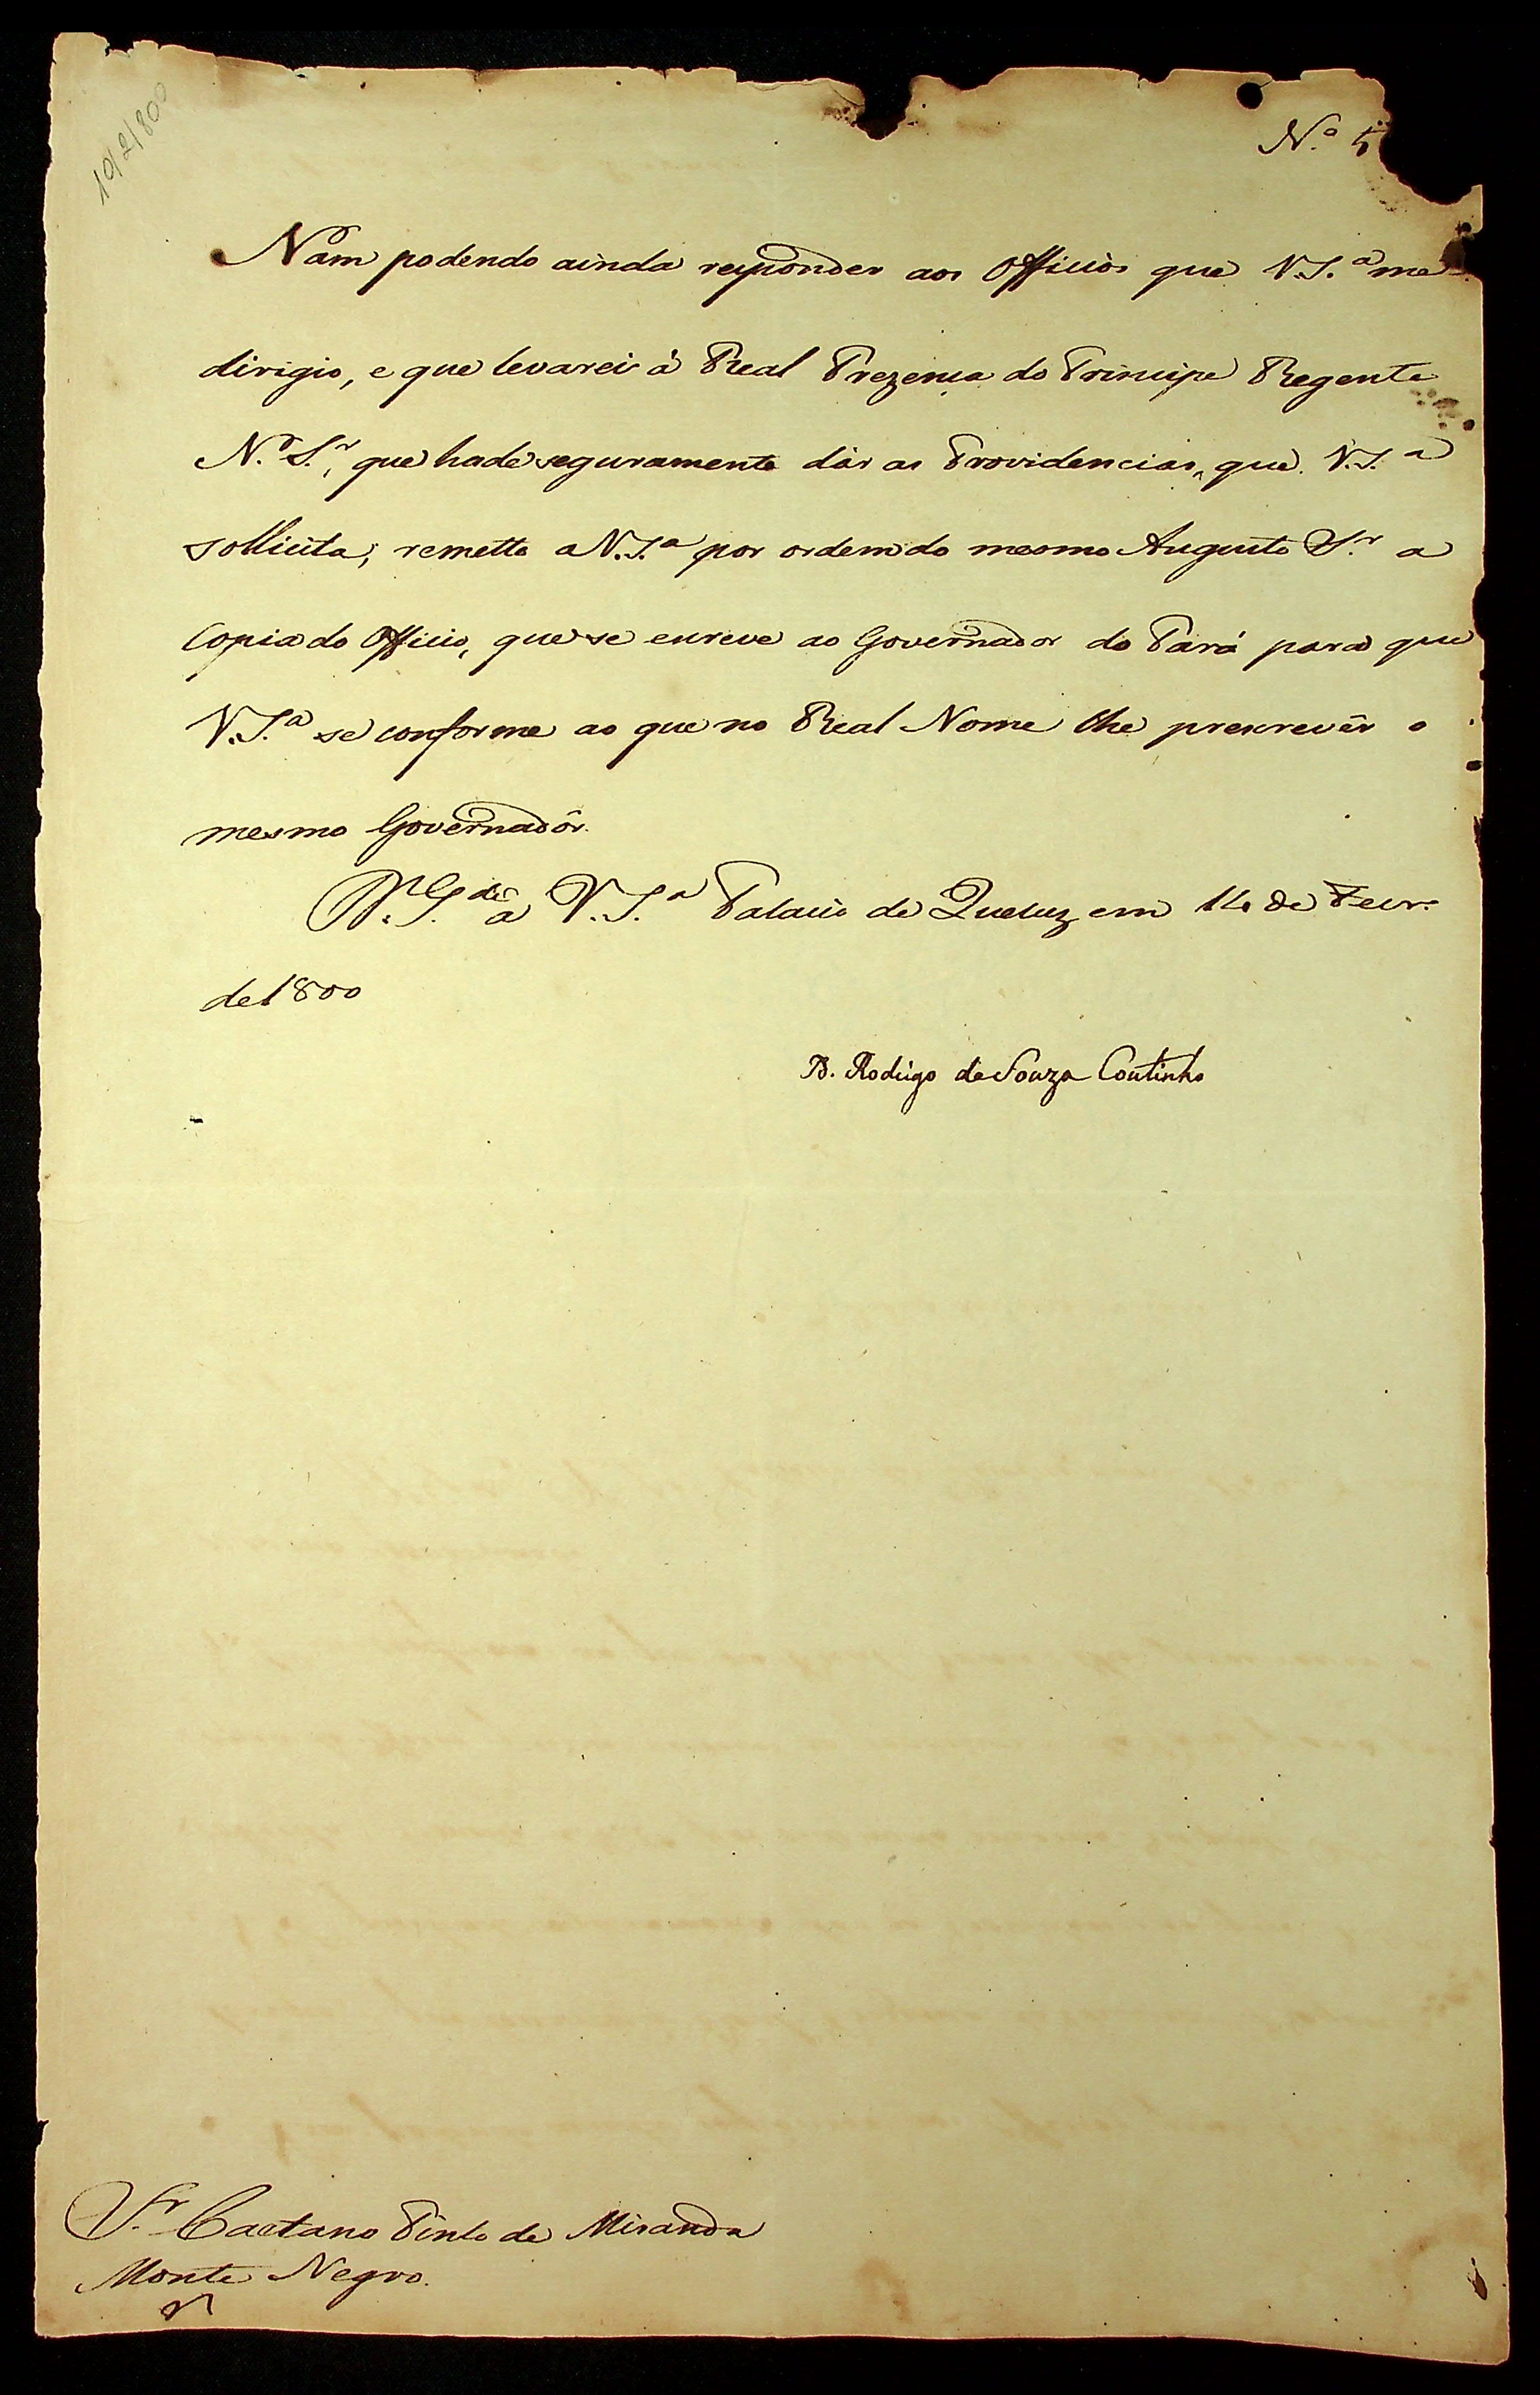 10/2/800
N.º 5
Nam podendo ainda responder aos Officios que V.S.ª me
dirigio, e que levarei á Real Prezença do Principe Regente
N. S.r, que hade seguramente dár as Providencias, que V.S.ª
sollicita; remetto a V.S.ª por ordem do mesmo Augusto S.r a
Copia do Officio, que se escreve ao Governador do Pará para que
V.S.ª se conforme ao que no Real Nome lhe prescrevêr o
mesmo Governadôr.
D.s G.de a V.S.ª Palacio de Queluz em de Fevr.º
de 1800
D. Rodrigo de Souza Coutinho
S.r Caetano Pinto de Miranda
Monte Negro.